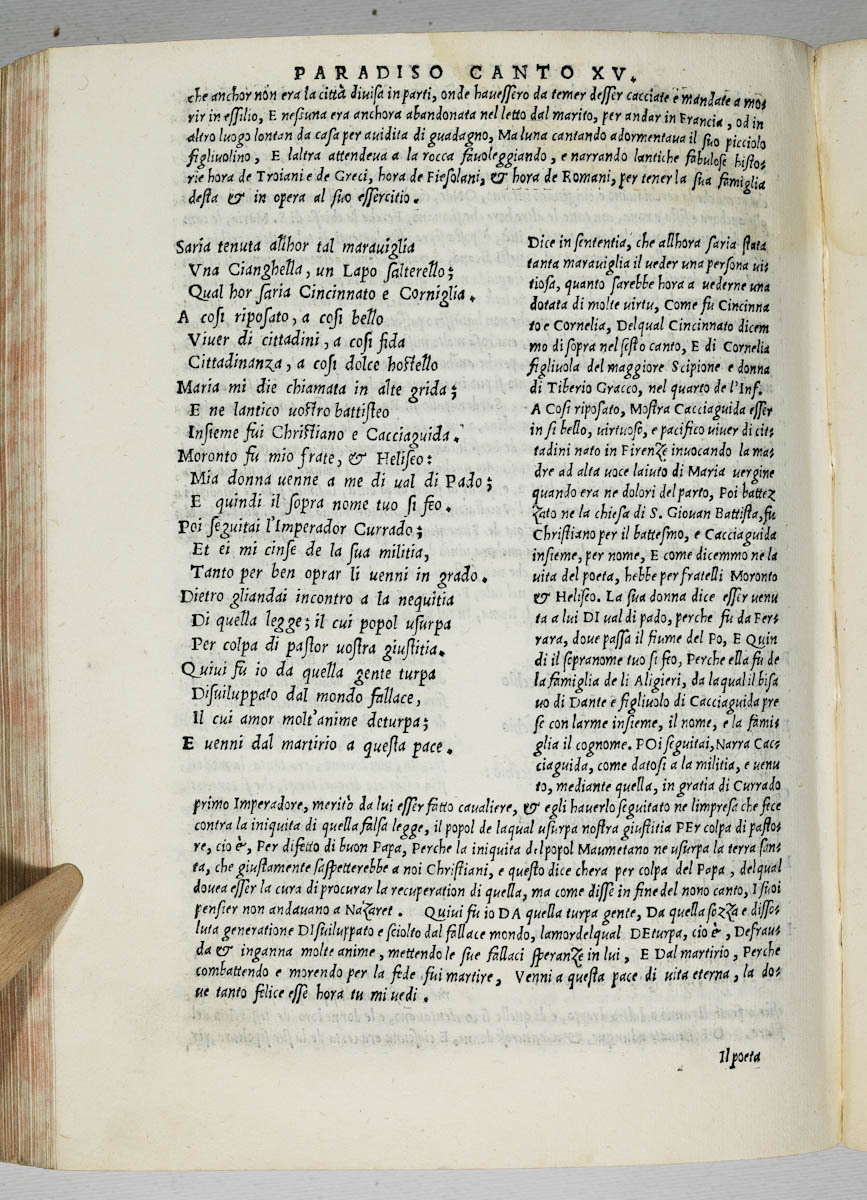 PARADISO CANTO XV.
che anchor non era la città divisa in parti, onde havessero da temer desser cacciate e mandate a mo-
rir in essilio, E nesciuna era anchora abandonata nel letto dal marito, per andar in Francia, od in
altro luogo lontan da casa per avidita di guadagno, Ma luna cantando adormentaua il suo picciolo
figliuolino, E laltra attendeua a la rocca fauoleggiando, e narrando lantiche fabulose histo-
rie hora de Troiani e de Greci, hora de Fiesolani, & hora de Romani, per tener la sua famiglia
desta & in opera al suo essercitio.
Saria tenuta allhor tal marauiglia
Vna Cianghella, un Lapo salterello;
Qual hor saria Cincinnato e Corniglia.
A cosi riposato, a cosi bello
Viuer di cittadini, a cosi fida
Cittadinanza, a cosi dolce hostello
Maria mi die chiamata in alte grida;
E ne lantico uostro battisteo
Insieme fui Christiano e Cacciaguida.
Moronto fu mio frate, & Heliseo:
Mia donna uenne a me di ual di Pado;
E quindi il sopra nome tuo si feo.
Poi seguitai l'Imperador Currado;
Et ei mi cinse de la sua militia,
Tanto per ben oprar li uenni in grado.
Dietro gliandai incontro a la nequitia
Di quella legge; il cui popol usurpa
Per colpa di pastor uostra giustitia.
Quiui fu io da quella gente turpa
Disuiluppato dal mondo fallace,
Il cui amor molt'anime deturpa;
E uenni dal martirio a questa pace.
Dice in sententia, che allhora saria stata
tanta marauiglia il ueder una persona ui-
tiosa, quanto sarebbe hora a uederne una
dotata di molte uirtu, Come fu Cincinna
to e Cornelia, Delqual Cincinnato dicem
mo di sopra nel sesto canto, E di Cornelia
figliuola del maggiore Scipione e donna
di Tiberio Gracco, nel quarto de l'Inf.
A Cosi riposato, Mostra Cacciaguida esser
in si bello, uirtuoso, e pacifico uiuer di cit-
tadini nato in Firenze inuocando la ma-
dre ad alta uoce laiuto di Maria uergine
quando era ne dolori del parto, Poi battez
zato ne la chiesa di S. Giouan Battista, fu
Christiano per il battesmo, e Cacciaguida
insieme, per nome, E come dicemmo ne la
uita del poeta, hebbe per fratelli Moronto
& Heliseo. La sua donna dice esser uenu
ta a lui DI ual di pado, perche fu da Fer-
rara, doue passa il fiume del Po, E Quin
di il sopranome tuo si feo, Perche ella fu de
la famiglia de li Aligieri, da laqual il bisa
uo di Dante e figliuolo di Cacciaguida pre
se con larme insieme, il nome, e la fami-
glia il cognome. POi seguitai, Narra Cac-
ciaguida, come datosi a la militia, e uenu
to, mediante quella, in gratia di Currado
primo Imperadore, meritò da lui esser fatto caualiere, & egli hauerlo seguitato ne limpresa che fece
contra la iniquita di quella falsa legge, il popol de laqual usurpa nostra giustitia PEr colpa di pasto-
re, cio è, Per difetto di buon Papa, Perche la iniquita del popol Maumetano ne usurpa la terra san-
ta, che giustamente saspetterebbe a noi Christiani, e questo dice chera per colpa del Papa, delqual
douea esser la cura di procurar la recuperation di quella, ma come disse in fine del nono canto, I suoi
pensier non andauano a Nazaret. Quiui fu io DA quella turpa gente, Da quella sozza e disso-
luta generatione DIsuiluppato e sciolto dal fallace mondo, lamor delqual DEturpa, cio è, Defrau-
da & inganna molte anime, mettendo le sue fallaci speranze in lui, E Dal martirio, Perche
combattendo e morendo per la fede fui martire, Venni a questa pace di uita eterna, la do-
ue tanto felice esse hora tu mi uedi.
Il poeta